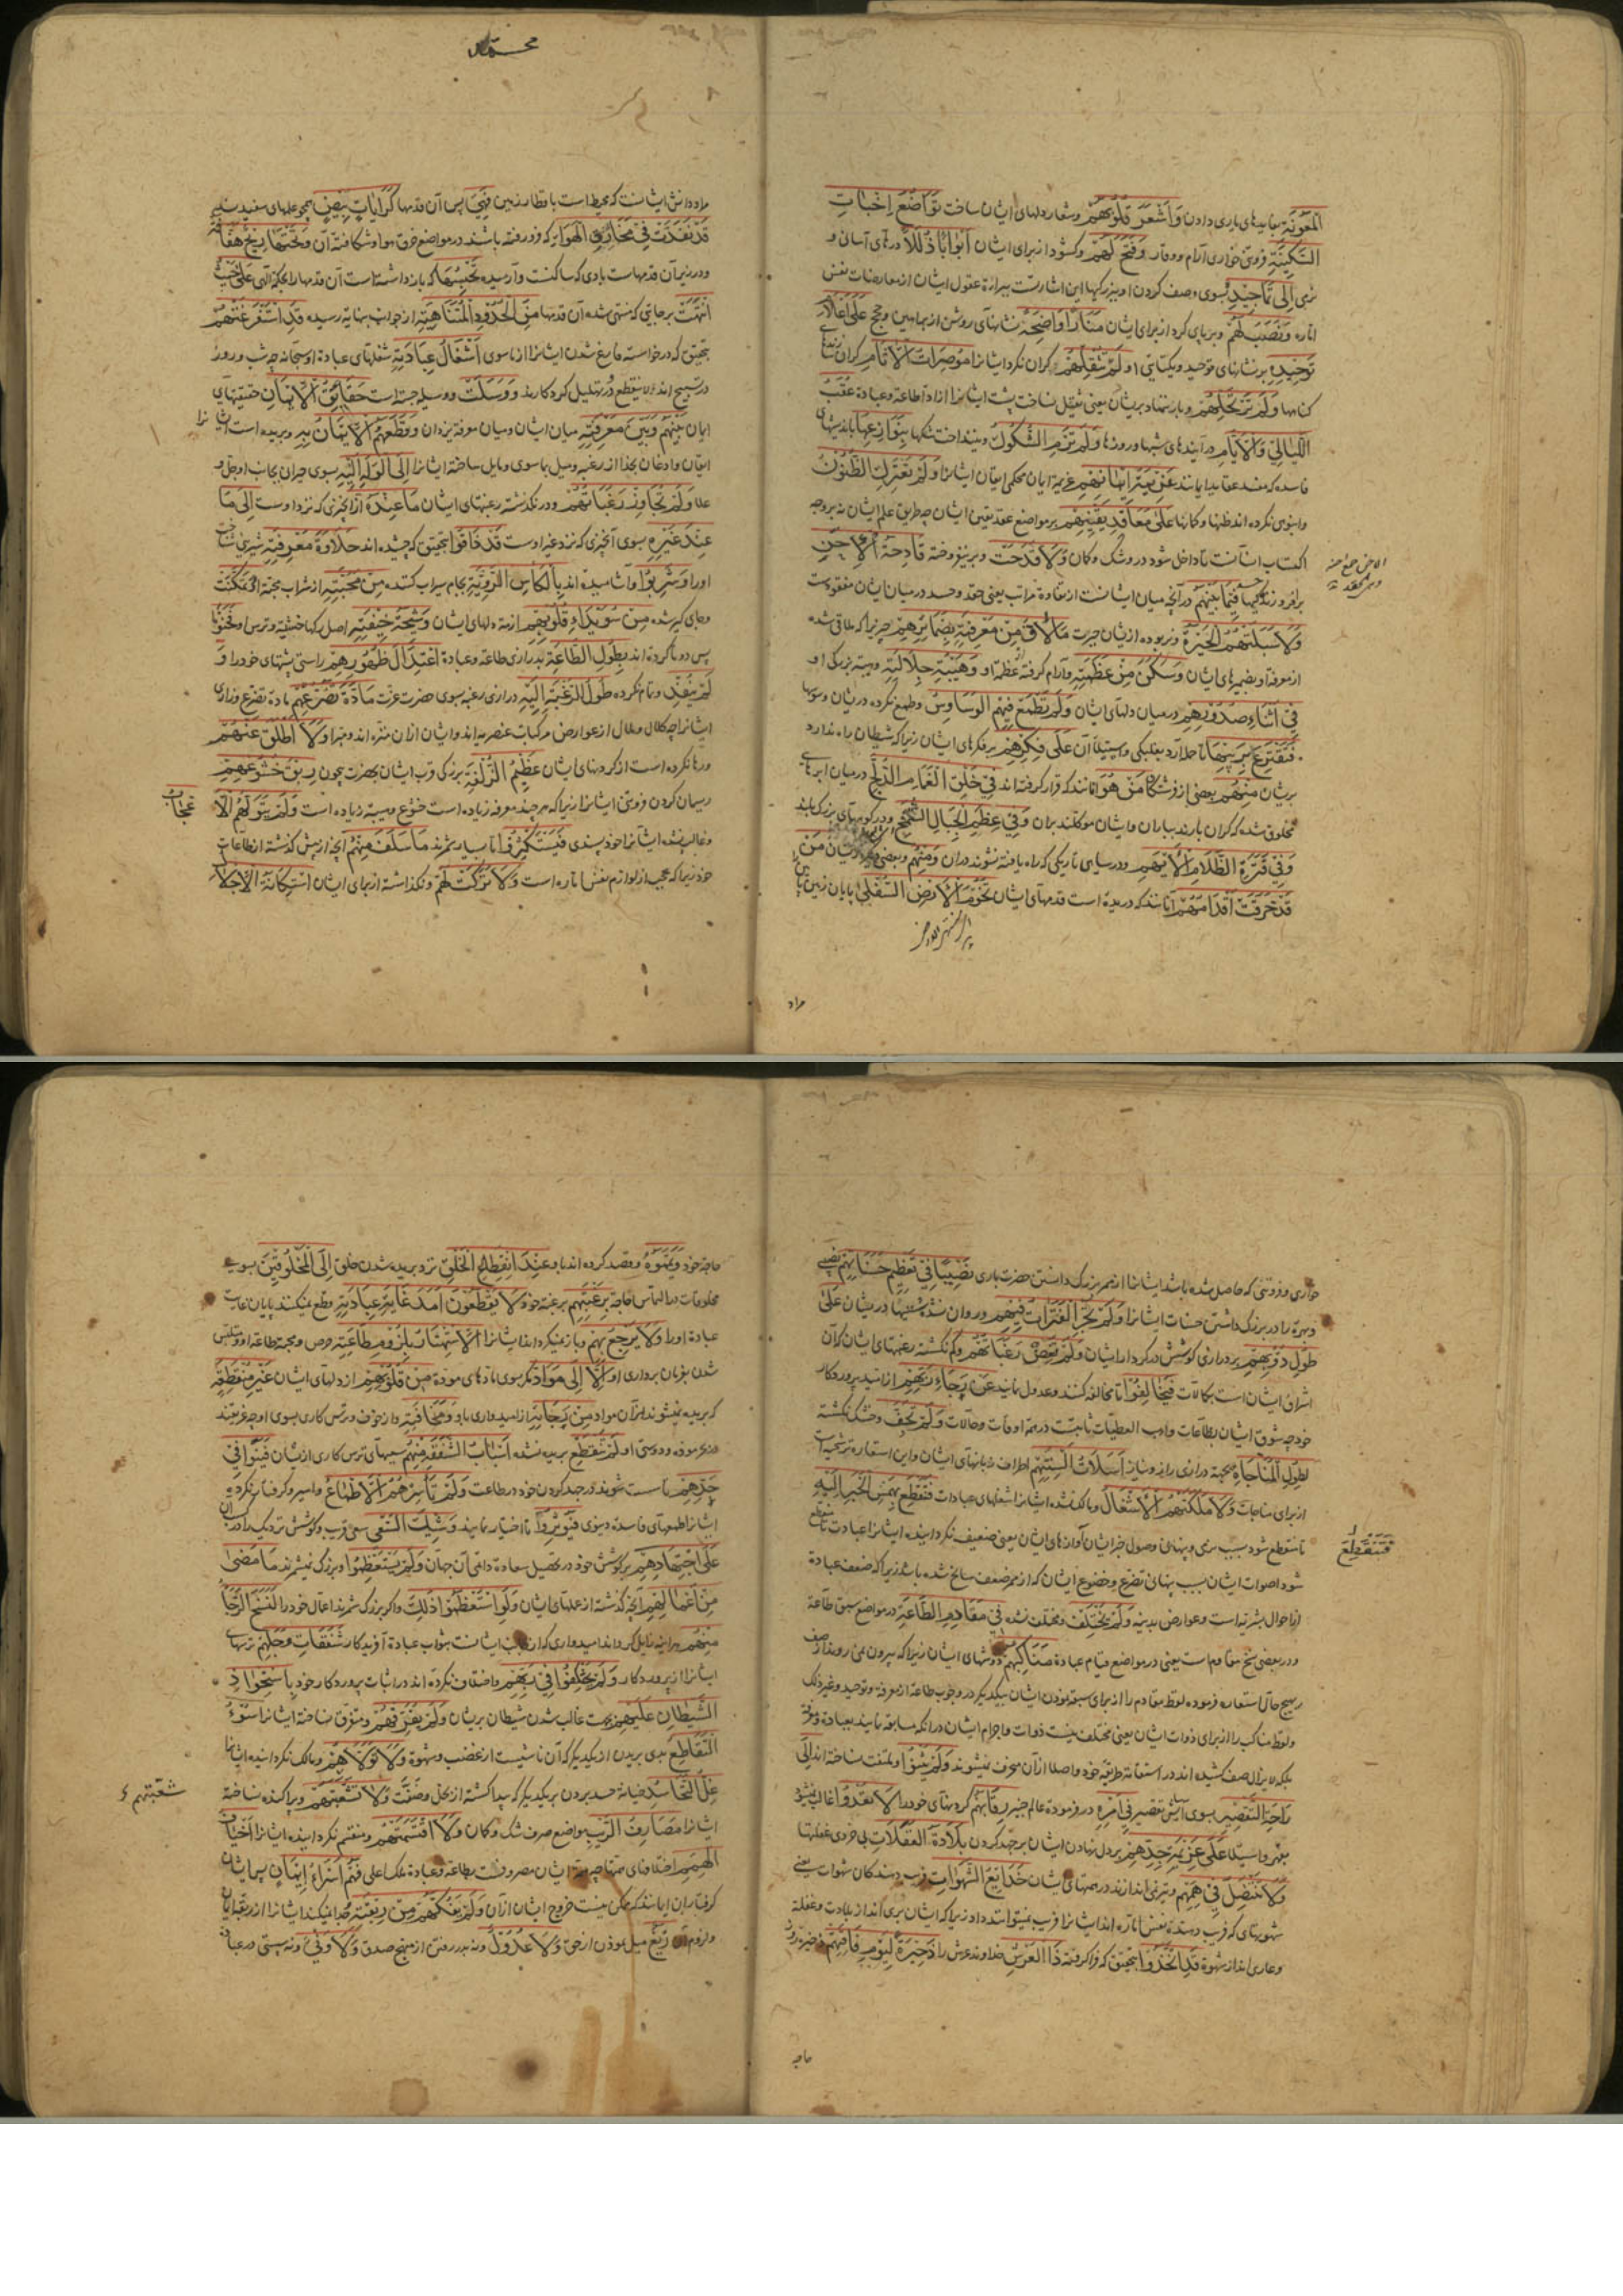 المَعُونَةِ بتاییدهای یاری دادن وَأَشْعَرَ قُلُوبَهُمْ وشعار دلهای ایشان ساخت تَوَاضُعَ إِخْبَاتِ
السَّكِينَةِ فروتنی خواری آرام ووقار وَفَتَحَ لَهُمْ وکشود از برای ایشان أَبْوَابًا ذُلُلًا درهای آسان و
نرمی إِلَى تَمَاجِيدِهِ بسوی وصف کردن او ببزرگیها این اشارتست عقول ایشان از معارضات نفس
اماره وَنَصَبَ لَهُمْ وبرپای کرد از برای ایشان مَنَارًا وَاضِحَةً نشانهای روشن از براهین وحجج عَلَى أَعْلَامِ
تَوْحِيدِهِ بر نشانهای توحید ویکتایی او لَمْ تُثْقِلْهُمْ کران نکرد ایشانرا مُوصِرَاتُ الْآثَامِ کران
کناهها وَلَمْ تَرْتَحِلْهُمْ وبار ننهاد بریشان یعنی ثقیل نساخت پشت ایشانرا از اداء طاعة وعبادة عُقَبُ
اللَّيَالِي وَالْأَيَّامِ در آیندهای شبها وروزها وَلَمْ تَرْمِ الشُّكُوكُ وننداخت شکها بِنَوَازِعِهَا
فاسده که مفسد عقاید ایمانند عَزِيمَةَ إِيمَانِهِمْ عزیمة ایمان محکم ایقان ایشانرا وَلَمْ تَعْتَرِكِ الظُّنُونُ
وانبوهی نکرده اند ظنها وکمانها عَلَى مَعَاقِدِ يَقِينِهِمْ بر مواضع عقد یقین ایشان چه طریق علم ایشان نه بر وجه
اکتساب انسانست تا داخل شود در و شک وکمان وَلَا قَدَحَتْ وبر نیفروخته قَادِحَةُ الْإِحَنِ
کینها فِيمَا بَيْنَهُمْ در آنچه میان ایشانست از تفاوة مراتب یعنی حقد وحسد در میان ایشان مفقودست
وَلَا سَلَبَتْهُمُ الْحَيْرَةُ ونربوده از ایشان حیرت مَا لَاقَ مِنْ مَعْرِفَتِهِ بِضَمَائِرِهِمْ چیزیرا که ملاقی شده
از معرفة او بضمیرهای ایشان وَسَكَنَ مِنْ عَظَمَتِهِ وآرام کرفته از عظمة او وَهَيْبَةِ جَلَالَتِهِ وهیبة بزرکی او
فِي أَثْنَاءِ صُدُورِهِمْ در میان دلهای ایشان وَلَمْ تَطْمَعْ فِيهِمُ الْوَسَاوِسُ وطمع نکرده دریشان وسوسها
فَتَقْتَرِعَ بِرَيْنِهَا تا حمله آرد بغلبکی واستیلاء آن عَلَى فِكْرِهِمْ بر فکرهای ایشان زیرا که شیطان راه ندارد
بریشان مِنْهُمْ بعضی از فرشتکان مَنْ هُوَ آنانند که قرار کرفته اند فِي خَلْقِ الْغَمَامِ الدُّلَّحِ در میان ابرهای
مخلوق شده که کران بارند بباران وایشان موکلند بران وَفِي عِظَمِ الْجِبَالِ الشُّمَّخِ ودر کوههای بزرک بلند
وَفِي قَتْرَةِ الظَّلَامِ الْأَيْهَمِ ودر سیاهی تاریکی که راه یافته نشوند دران وَمِنْهُمْ وبعضی مَنْ
قَدْ خَرَقَتْ أَقْدَامُهُمْ آنانند که دریده است قدمهای ایشان تُخُومَ الْأَرْضِ السُّفْلَى پایان زمین
مراد
محمد
مراد دانش ایشانست که محیط است باقطار زمین فَهِيَ پس آن قدمها كَرَايَاتٍ بِيضٍ همچو علمهای سفیدست
قَدْ نَفَذَتْ فِي مَخَارِقِ الْهَوَاءِ که فرو رفته باشند در مواضع خرق هوا وشکافتة آن وَتَحْتَهَا رِيحٌ هَفَّافَةٌ
ودر زیر آن قدمهاست بادی که ساکنست وآرمیده تَحْبِسُهَا که باز داشته است آن قدمها را بحکم الهی عَلَى حَيْثُ
انْتَهَتْ بر جایی که منتهی شده آن قدمها مِنَ الْحُدُودِ الْمُتَنَاهِيَةِ از جوانب بنهایة رسیده قَدِ اسْتَفْرَغَتْهُمْ
بتحقیق که در خواسته فارغ شدن ایشانرا از ماسوی أَشْغَالُ عِبَادَتِهِ شغلهای عبادة او سبحانه چه شب وروز
در تسبیح اند وَوَسَلَتْ ووسیله جسته است حَقَائِقُ الْإِيمَانِ حقیقتهای
ایمان بَيْنَهُمْ وَبَيْنَ مَعْرِفَتِهِ میان ایشان ومیان معرفة یزدان وَقَطَعَهُمُ الْإِيقَانُ بِهِ وبریده است ایشانرا
ایقان واذعان بخدا از رغبة ومیل بماسوی ومایل ساخته ایشانرا إِلَى الْوَلَهِ إِلَيْهِ بسوی حیران بجانب او جل و
علا وَلَمْ تُجَاوِزْ رَغَبَاتُهُمْ ودر نکذشته رغبتهای ایشان مَا عِنْدَهُ از آنچیزی که نزد اوست إِلَى مَا
عِنْدَ غَيْرِهِ بسوی آنچیزی که نزد غیر اوست قَدْ ذَاقُوا بتحقیق که چشیده اند حَلَاوَةَ مَعْرِفَتِهِ شیرینی شناخت
اورا وَشَرِبُوا وآشامیده اند بِالْكَأْسِ الرَّوِيَّةِ بجام سیراب کننده مِنْ مَحَبَّتِهِ از شراب محبة او وَتَمَكَّنَتْ
وجای کیر شده مِنْ سُوَيْدَاءِ قُلُوبِهِمْ از ته دلهای ایشان وَشِيجَةُ خِيفَتِهِ اصل رکها خشیة وترس او فَحَنَوْا
پس دوتا کرده اند بِطُولِ الطَّاعَةِ بدرازی طاعة وعبادة اعْتِدَالَ ظُهُورِهِمْ راستی پشتهای خود را وَ
لَمْ يُنْفِدْ وتمام نکرده طُولُ الرَّغْبَةِ إِلَيْهِ درازی رغبة بسوی حضرت عزت مَادَّةَ تَضَرُّعِهِمْ مادة تضرع وزاری
ایشانرا چه کلال وملال از عوارض مرکبات عنصریه اند وایشان ازان منزه اند ومبرا وَلَا أَطْلَقَ عَنْهُمْ
ورها نکرده است از کردنهای ایشان عَظِيمُ الزُّلْفَةِ بزرکی قرب ایشان بحضرت بیچون رِبَقَ خُشُوعِهِمْ
ریسمان کردن فروتنی ایشانرا زیرا که هر چند معرفة زیاده است خشوع وهیبة زیاده است وَلَمْ يَتَوَلَّهُمُ الْإِ
عْجَابُ
وغالب نشده ایشانرا خود پسندی فَيَسْتَكْثِرُوا تا بسیار شمرند مَا سَلَفَ مِنْهُمْ آنچه از پیش کذشته از طاعات
خود زیرا که عجب از لوازم نفس اماره است وَلَا تَرَكَتْ لَهُمْ ونکذاشته از برای ایشان اسْتِكَانَةُ الْإِجْلَالِ
خواری وفروتنی که حاصل شده باشد ایشانرا از ممر بزرک داشتن حضرت باری نَصِيبًا فِي تَعْظِيمِ حَسَنَاتِهِمْ
وبهرۀ را در بزرک داشتن حسنات ایشانرا وَلَمْ تَجْرِ الْفَتَرَاتُ فِيهِمْ وروان نشده سستیها دریشان عَلَى
طُولِ دُؤُوبِهِمْ بر درازی کوشش در کردار ایشان وَلَمْ تَغِضْ رَغَبَاتُهُمْ وکم نکشته رغبتهای ایشان که آن
اشراق ایشان است بکمالات فَيُخَالِفُوا تا مخالفه کنند وعدول نمایند عَنْ رَجَاءِ رَبِّهِمْ از امید پروردکار
خود چه شوق ایشان بطاعات واهب العطیات ثابتست در همه اوقات وحالات وَلَمْ تَجِفَّ وخشک نکشته
لِطُولِ الْمُنَاجَاةِ بجهة درازی راز ونیاز أَسَلَاتُ أَلْسِنَتِهِمْ اطراف زبانهای ایشان واین استعاره ترشیحیه است
از برای مناجات وَلَا مَلَكَتْهُمُ الْأَشْغَالُ ومالک نشده ایشانرا شغلهای عبادات فَتَنْقَطِعَ بِهَمْسِ الْخَبَرِ إِلَيْهِ
فَتَنْقَطِعَ
شود اصوات ایشان بسبب پنهانی تضرع وخضوع ایشان که از ممر ضعف سانح نشده باشد زیرا که ضعف عبادة
از احوال بشریه است وعوارض بدنیه وَلَمْ تَخْتَلِفْ ومختلف نشده فِي مَقَاوِمِ الطَّاعَةِ در مواضع سبق طاعة
ودر بعضی نسخ مقاوم است یعنی در مواضع قیام عبادة مَنَاكِبُهُمْ دوشهای ایشان زیرا که بیرون نمی روند از صف
ولفظ مناکب را از برای ذوات ایشان یعنی مختلف نیست ذوات واجرام ایشان در انکه مسابقه نمایند بعبادة ومعرفة
بلکه لا یزال صف کشیده اند در استقامة طریقۀ خود واصلا ازان منحرف نمیشوند وَلَمْ يَثْنُوا وملتفت نساخته اند إِلَى
رَاحَةِ التَّقْصِيرِ بسوی آسایش تقصیر فِي أَمْرِهِ در فرمودۀ عالم خبیر رِقَابَهُمْ کردنهای خود را لَا تَعْدُو غالب نمیشود
عَلَى عَزِيمَةِ جِدِّهِمْ بر دل نهادن ایشان بر جد کردن بَلَادَةُ الْغَفَلَاتِ بی خردی غفلتها
وَلَا تَنْتَضِلُ فِي هِمَمِهِمْ وتیر نمی اندازند در همتهای ایشان خَدَائِعُ الشَّهَوَاتِ فریب دهندکان شهوات یعنی
شهوتهای که فریب دهنده نفس اماره اند ایشانرا فریب نمیتوانند داد زیرا که ایشان بری اند از بلادت وغفلة
وعاری اند از شهوة قَدِ اتَّخَذُوا بتحقیق که فرا کرفته ذَا الْعَرْشِ خداوند عرش را ذَخِيرَةً لِيَوْمِ فَاقَتِهِمْ ذخیره
حاجة
حاجة خود وَيَمَّمُوهُ وقصد کرده اند باو عِنْدَ انْقِطَاعِ الْخَلْقِ نزد بریده شدن خلق إِلَى الْمَخْلُوقِينَ بسوی
مخلوقات بِرَغْبَتِهِمْ برغبة خود لَا يَقْطَعُونَ أَمَدَ غَايَةِ عِبَادَتِهِ وقطع نمیکنند پایان غایت
عبادة اورا وَلَا يَرْجِعُ بِهِمُ وباز نمیکرداند ایشانرا الِاسْتِهْتَارُ بِلُزُومِ طَاعَتِهِ حرص ومحبة طاعة او
شدن بفرمان برداری او إِلَّا إِلَى مَوَادَّ مکر بسوی مادهای معرفة مِنْ قُلُوبِهِمْ از دلهای ایشان غَيْرِ مُنْقَطِعَةٍ
که بریده نمیشوند ازان مواد مِنْ رَجَائِهِ از امیدواری باو وَمَخَافَتِهِ واز خوف وترس کاری بسوی او
لَمْ تَنْقَطِعْ بریده نشده أَسْبَابُ الشَّفَقَةِ مِنْهُمْ سببهای ترس کاری از ایشان فَيَنُوا فِي
جِدِّهِمْ تا سست شوند در جد کردن خود در طاعت وَلَمْ تَأْسِرْهُمُ الْأَطْمَاعُ واسیر وکرفتار نکرده
ایشانرا طمعهای فاسده دنیوی فَيُؤْثِرُوا تا اختیار نمایند وَشِيكَ السَّعْيِ سعی قریب وکوشش نزدیک را
عَلَى اجْتِهَادِهِمْ بر کوشش خود در تحصیل سعادة دائمی آن جهان وَلَمْ يَسْتَعْظِمُوا وبزرک نمیشمرند مَا مَضَى
مِنْ أَعْمَالِهِمْ آنچه کذشته از عملهای ایشان وَلَوِ اسْتَعْظَمُوا ذَلِكَ واکر بزرک شمرند اعمال خود را لَنَسَخَ الرَّجَاءُ
مِنْهُمْ هر اینه زایل کرداند امیدواری که ایشانست بثواب عبادة آفریدکار شَفَقَاتِ وَجَلِهِمْ ترسهای
ایشانرا از پروردکار وَلَمْ يَخْتَلِفُوا فِي رَبِّهِمْ واختلاف نکرده اند در اثبات پروردکار خود بِاسْتِحْوَاذِ
الشَّيْطَانِ عَلَيْهِمْ بجهت غالب شدن شیطان بریشان وَلَمْ يُفَرِّقْهُمْ ومتفرق نساخته ایشانرا سُوءُ
التَّقَاطُعِ بدی بریدن از یکدیکر که آن ناشیست از غضب وشهوة وَلَا تَوَلَّاهُمْ ومالک نکردانیده ایشانرا
غِلُّ التَّحَاسُدِ خیانة حسد بردن بر یکدیکر که پیدا کشته از بخل وضنّت وَلَا تَشَعَّبَتْهُمْ وپراکنده نساخته
شَعَّبَتْهُمْ
ایشانرا مَصَارِفُ الرَّيْبِ مواضع صرف شک وکمان وَلَا اقْتَسَمَتْهُمْ ومنقسم نکردانیده ایشانرا أَخْيَافُ
الْهِمَمِ اختلافهای همتها چه همة ایشان مصروفست بطاعة وعبادة ملک اعلی فَهُمْ أُسَرَاءُ إِيمَانٍ پس ایشان
کرفتاران ایمانند که ممکن نیست خروج ایشان ازان وَلَمْ يَفُكَّهُمْ مِنْ رِبْقَتِهِ وجدا نمیکند ایشانرا از ربقۀ ایمان
زَيْغٌ میل نمودن از حق وَلَا عُدُولٌ ونه بدر رفتن از منهج صدق وَلَا وَنًى ونه سستی در عبادة